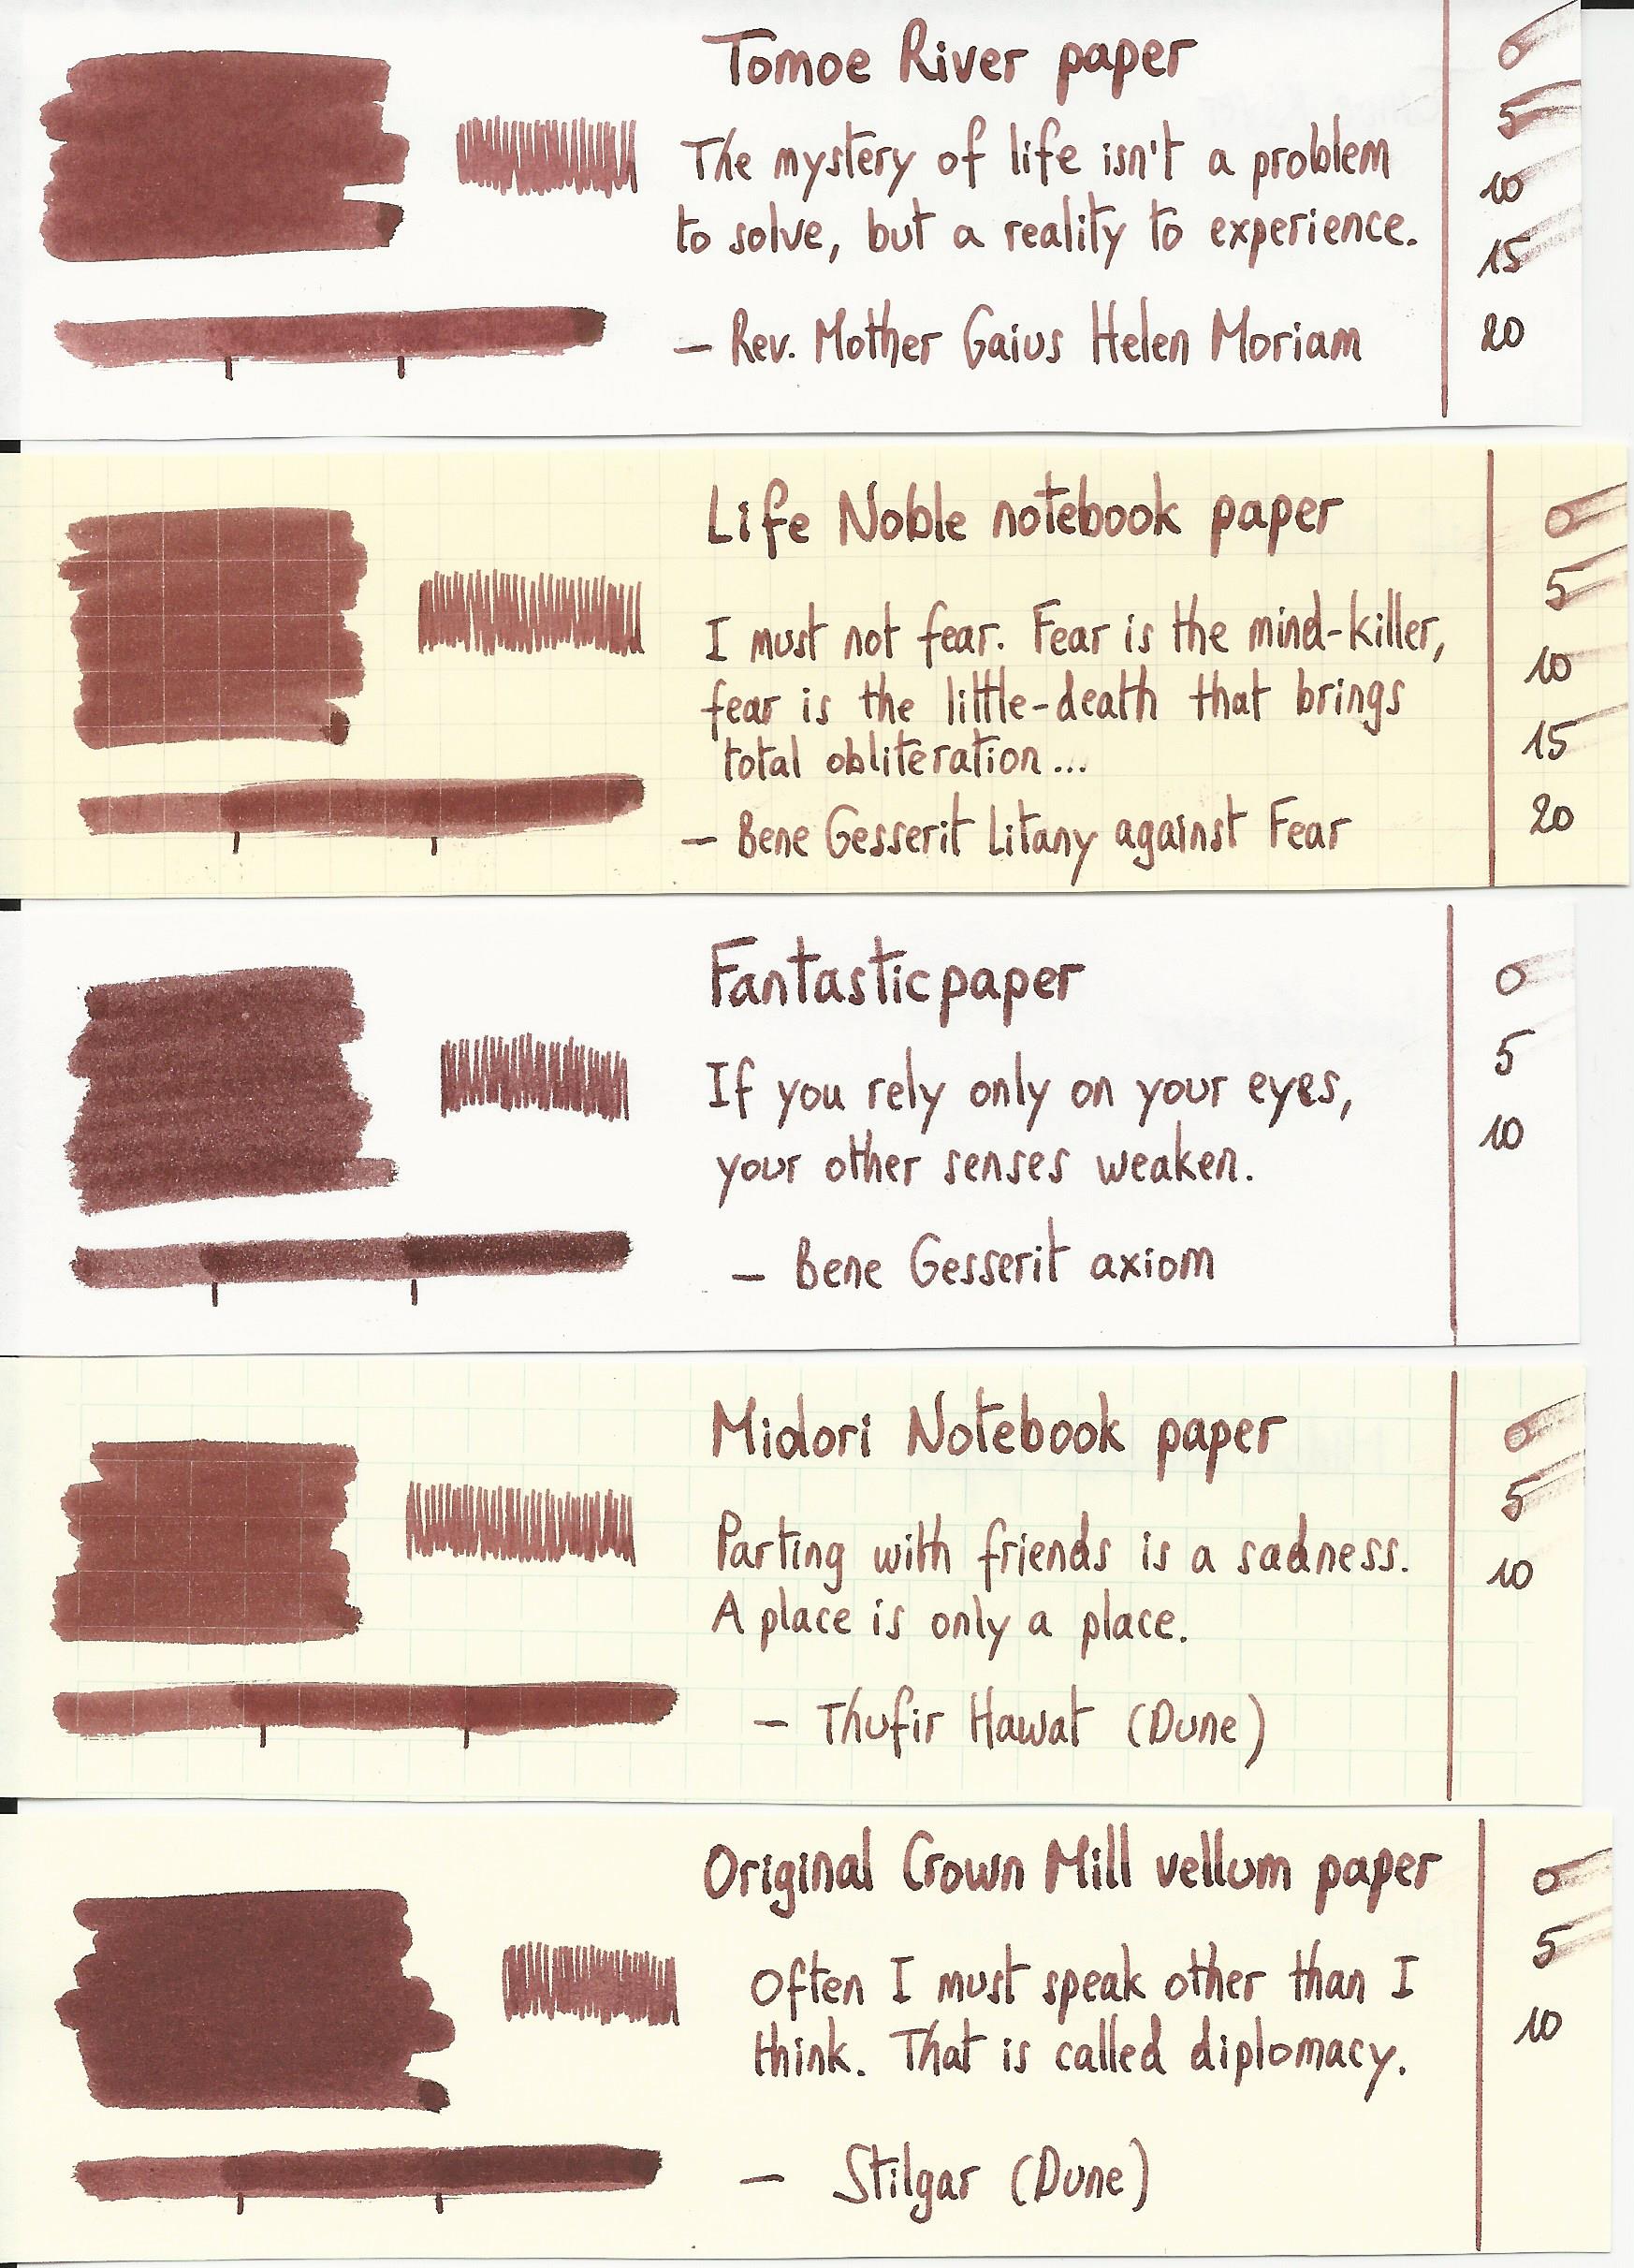 Tomoe River paper
The mystery of life isn't a problem
to solve, but a reality to experience.
– Rev. Mother Gaius Helen Moriam
0
5
10
15
20
Life Noble notebook paper
I must not fear. Fear is the mind-killer,
fear is the little-death that brings
total obliteration...
– Bene Gesserit Litany against Fear
0
5
10
15
20
Fantasticpaper
If you rely only on your eyes,
your other senses weaken.
– Bene Gesserit axiom
0
5
10
Midori Notebook paper
Parting with friends is a sadness.
A place is only a place.
– Thufir Hawat (Dune)
0
5
10
Original Crown Mill vellum paper
Often I must speak other than I
think. That is called diplomacy.
– Stilgar (Dune)
0
5
10